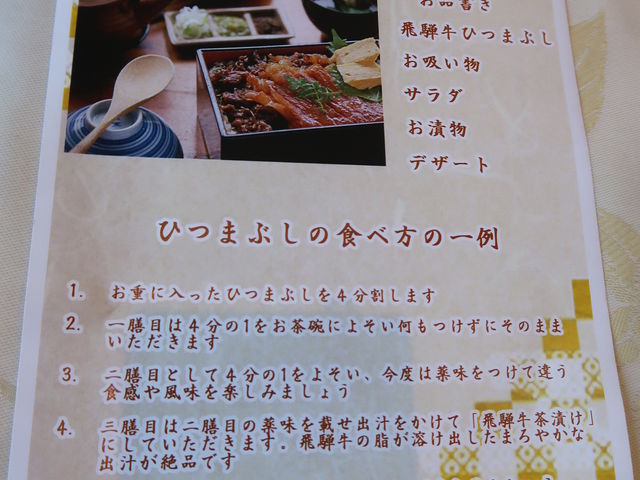 お品書き
飛騨牛ひつまぶし
お吸い物
サラダ
お漬物
デザート
ひつまぶしの食べ方の一例
1. お重に入ったひつまぶしを4分割します
2. 一膳目は4分の1をお茶碗によそい何もつけずにそのまま
いただきます
3. 二膳目として4分の1をよそい、今度は薬味をつけて違う
食感や風味を楽しみましょう
4. 三膳目は二膳目の薬味を載せ出汁をかけて「飛騨牛茶漬け」
にしていただきます．飛騨牛の脂が溶け出したまろやかな
出汁が絶品です